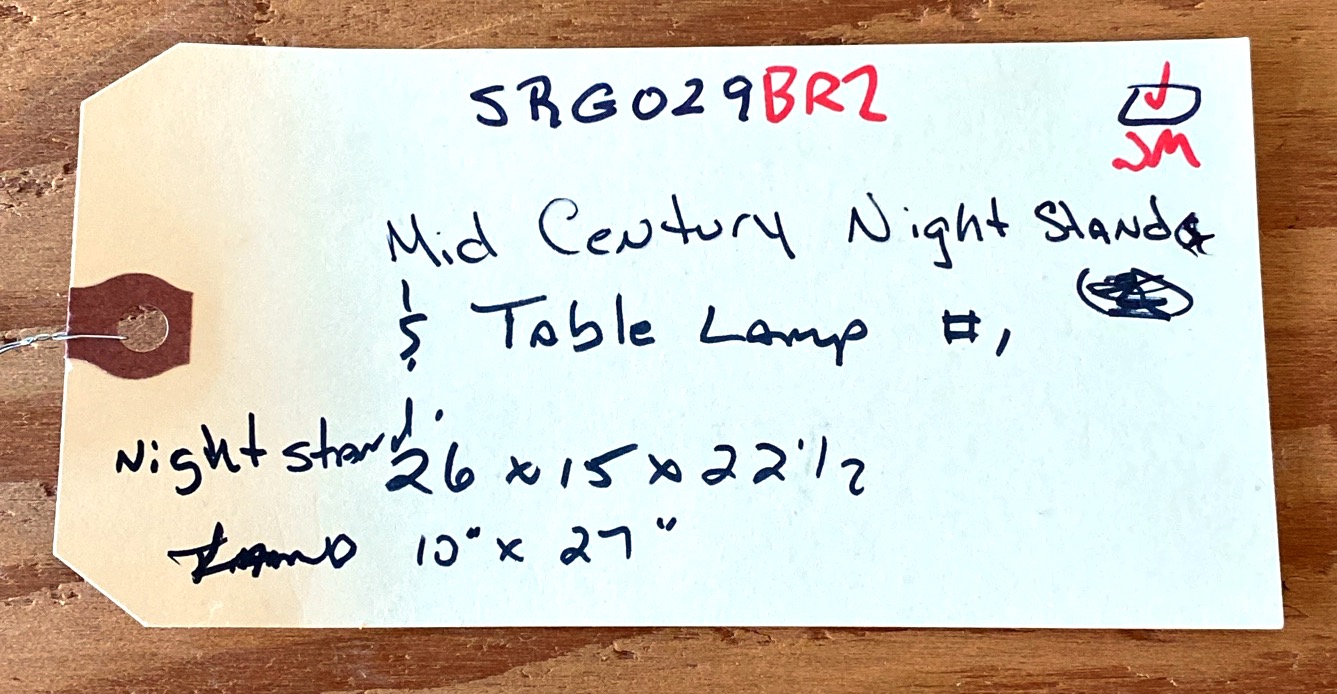 SRG029BR2
JM
Mid Century Night Stand
& Table Lamp #1
Night stand: 26 x 15 x 22 1/2
Lamp 10" x 27"